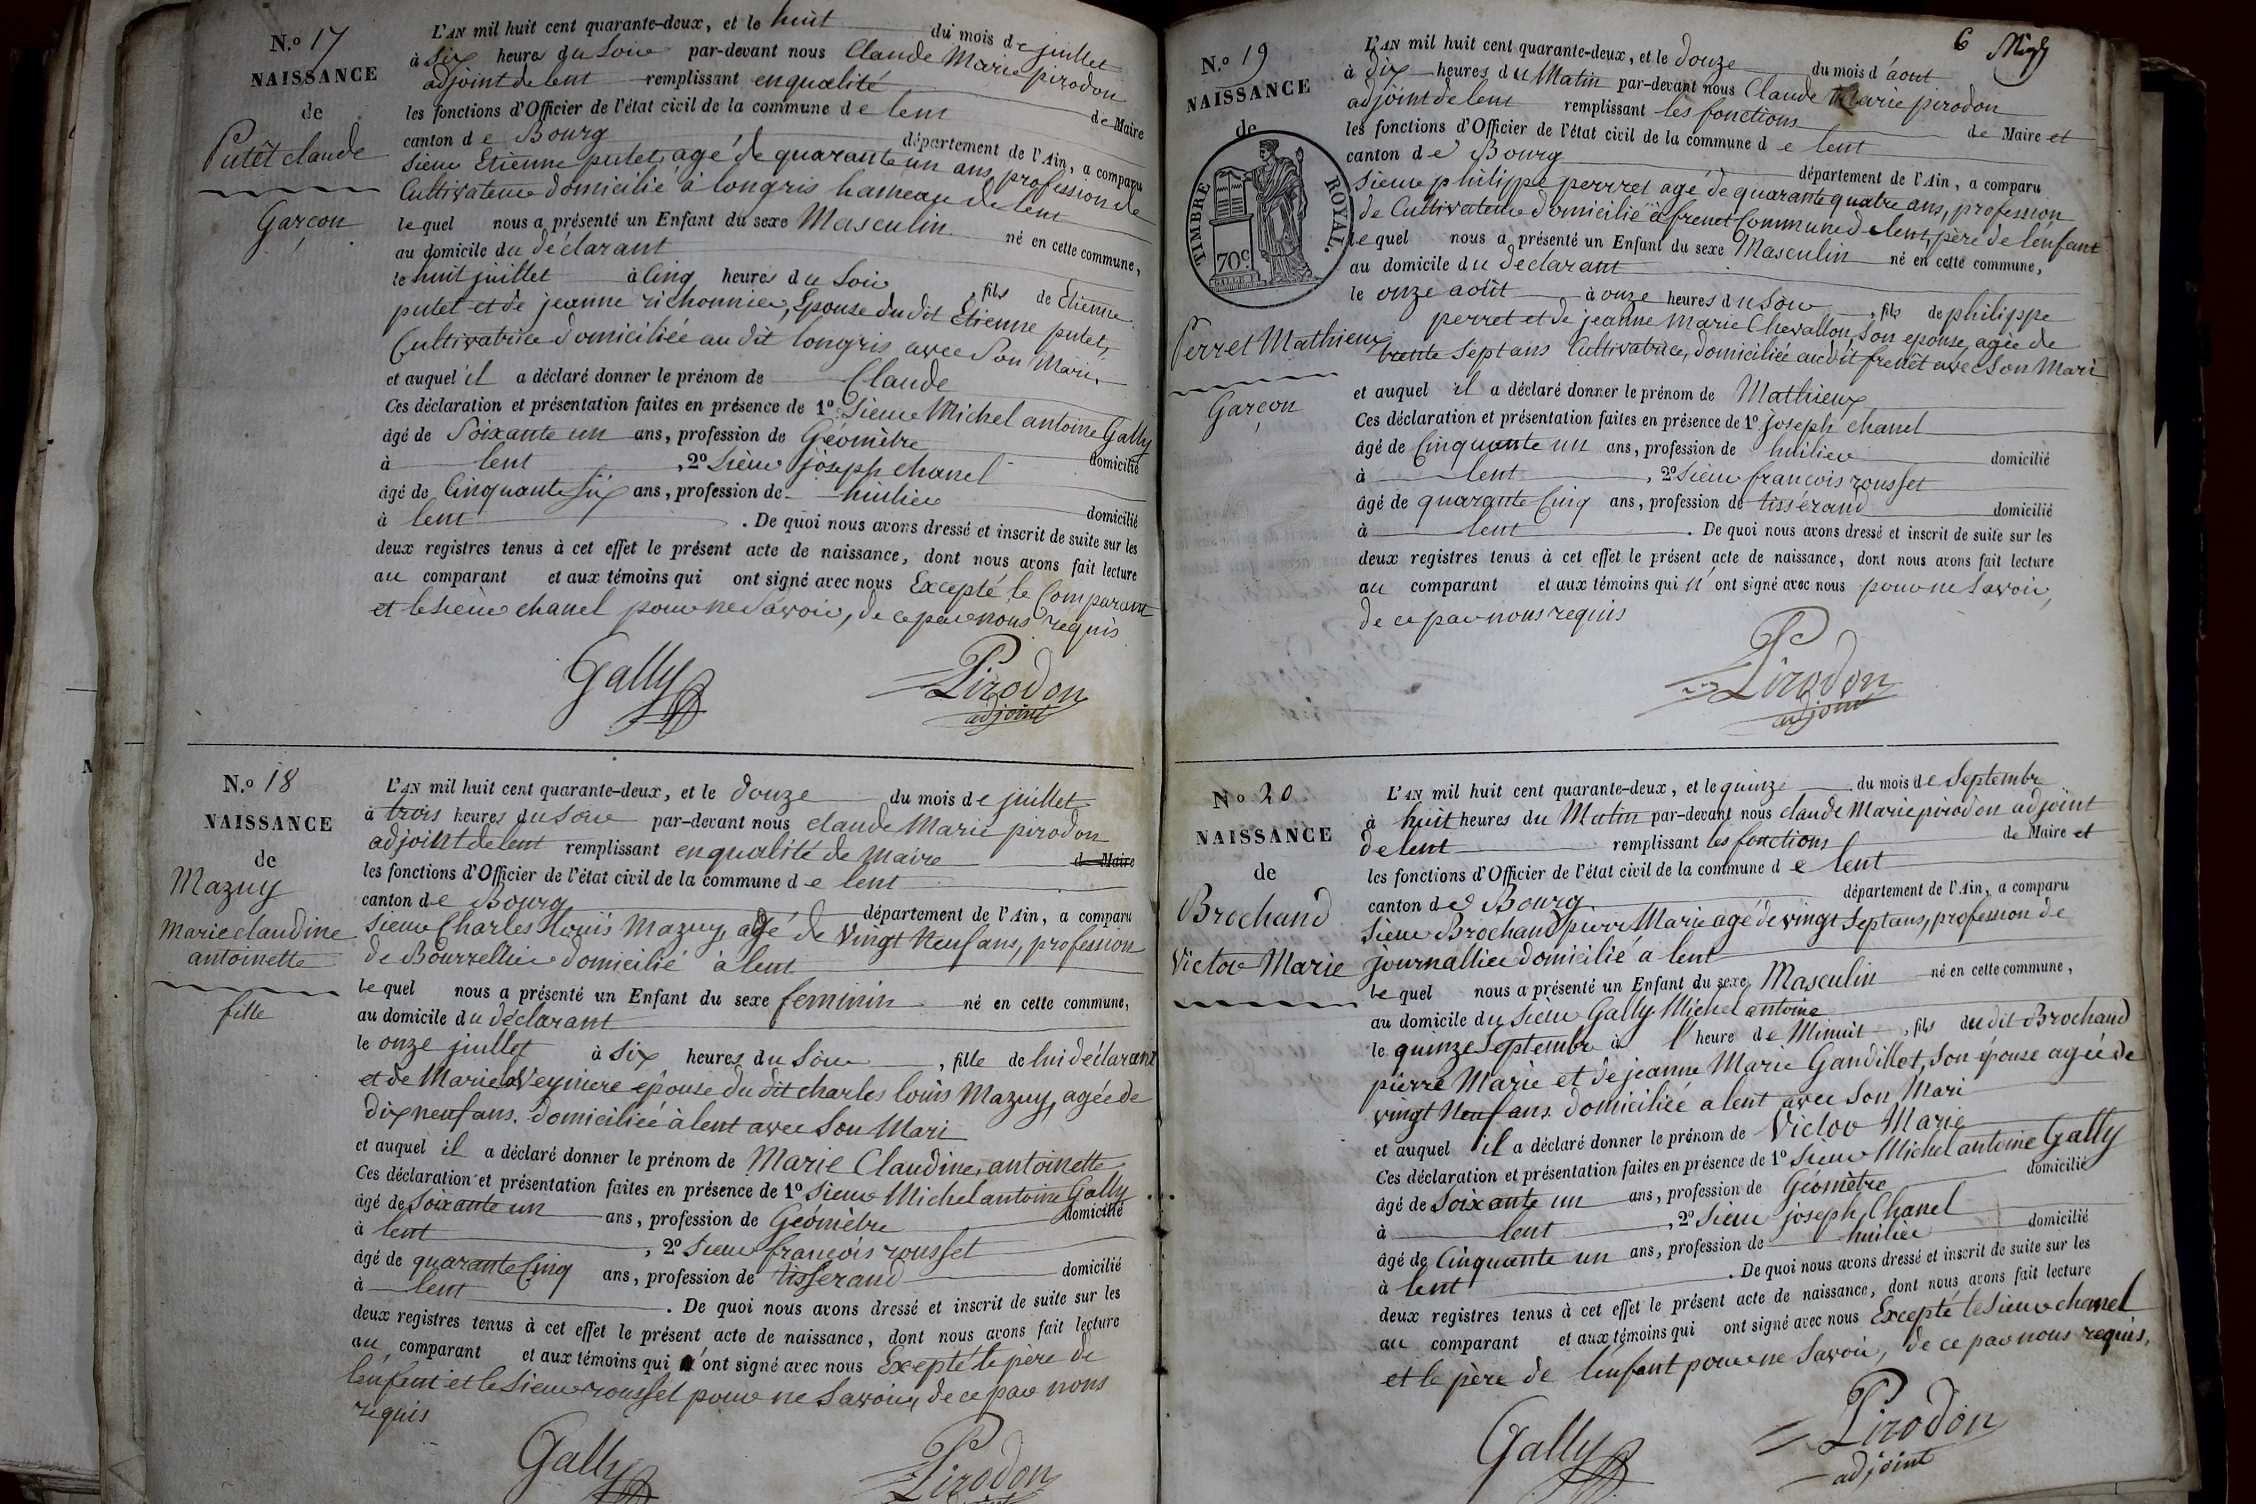 N.o 17
NAISSANCE
de
Putêt claude
Garçon
L'AN mil huit cent quarante-deux, et le huit du mois de juillet
à six heures du soir par-devant nous Claude Marie pirodon
adjoint de lent remplissant en qualité de Maire
les fonctions d'Officier de l'état civil de la commune de lent
canton de Bourg département de l'Ain, a comparu
sieur Etienne putet, agé de quarante un ans, profession de
Cultivateur domicilié à longris hameau de lent
lequel nous a présenté un Enfant du sexe Masculin né en cette commune,
au domicile du déclarant
le huit juillet à Cinq heures du soir, fils de Etienne
putet et de jeanne richonnier, Epouse du dit Etienne putet,
Cultivatrice domiciliée au dit longris avec Son Mari
et auquel il a déclaré donner le prénom de Claude
Ces déclaration et présentation faites en présence de 1o Sieur Michel antoine Gally
âgé de Soixante un ans, profession de Géomètre domicilié
à lent, 2o Sieur joseph chanel
âgé de Cinquante six ans, profession de huilier domicilié
à lent. De quoi nous avons dressé et inscrit de suite sur les
deux registres tenus à cet effet le présent acte de naissance, dont nous avons fait lecture
au comparant et aux témoins qui ont signé avec nous Excepté le Comparant
et le sieur chanel pour ne Savoir, de ce par nous requis
Gally Pirodon
adjoint
N.o 18
NAISSANCE
de
Mazuy
Marie claudine
antoinette
fille
L'AN mil huit cent quarante-deux, et le douze du mois de juillet
à trois heures du soir par-devant nous claude Marie pirodon
adjoint de lent remplissant en qualité de Maire de Maire
les fonctions d'Officier de l'état civil de la commune de lent
canton de Bourg département de l'Ain, a comparu
Sieur Charles louis Mazuy, agé de Vingt Neuf ans, profession
de Bourrellier domicilié à lent
lequel nous a présenté un Enfant du sexe feminin né en cette commune,
au domicile du déclarant
le onze juillet à six heures du soir, fille de lui déclarant
et de Marie Veyniere epouse du dit charles louis Mazuy, agée de
dix neuf ans. domiciliée à lent avec Son Mari
et auquel il a déclaré donner le prénom de Marie Claudine, antoinette
Ces déclaration et présentation faites en présence de 1o Sieur Michel antoine Gally
âgé de Soixante un ans, profession de Géomètre domicilié
à lent, 2o Sieur françois rousset
âgé de quarante Cinq ans, profession de tisserand domicilié
à lent. De quoi nous avons dressé et inscrit de suite sur les
deux registres tenus à cet effet le présent acte de naissance, dont nous avons fait lecture
au comparant et aux témoins qui ont signé avec nous Excepté le père de
lenfent et le Sieur rousset pour ne Savoir, de ce par nous
requis
Gally Pirodon
6
N.o 19
NAISSANCE
de
TIMBRE ROYAL.
70c
Perret Mathieux
Garçon
L'AN mil huit cent quarante-deux, et le douze du mois d'aout
à dix heures du Matin par-devant nous Claude Marie pirodon
adjoint de lent remplissant les fonctions de Maire et
les fonctions d'Officier de l'état civil de la commune de lent
canton de Bourg département de l'Ain, a comparu
Sieur philippe perret agé de quarante quatre ans, profession
de Cultivateur domicilié à frenet Commune de lent, père de l'énfant
lequel nous a présenté un Enfant du sexe Masculin né en cette commune,
au domicile du déclarant
le onze août à onze heures du soir, fils de philippe
perret et de jeanne Marie Chevallon, Son epouse, agée de
trente Sept ans Cultivatrice, domiciliée audit frenêt avec Son Mari
et auquel il a déclaré donner le prénom de Mathieux
Ces déclaration et présentation faites en présence de 1o joseph chanel
âgé de Cinquante un ans, profession de huilier domicilié
à lent, 2o Sieur francois rousset
âgé de quarante Cinq ans, profession de tissérand domicilié
à lent. De quoi nous avons dressé et inscrit de suite sur les
deux registres tenus à cet effet le présent acte de naissance, dont nous avons fait lecture
au comparant et aux témoins qui n'ont signé avec nous pour ne Savoir,
de ce par nous requis
Pirodon
adjoint
No 20
NAISSANCE
de
Brochand
Victor Marie
L'AN mil huit cent quarante-deux, et le quinze du mois de Septembre
à huit heures du Matin par-devant nous claude Marie pirodon adjoint
de lent remplissant les fonctions de Maire et
les fonctions d'Officier de l'état civil de la commune de lent
canton de Bourg département de l'Ain, a comparu
Sieur Brochand pierre Marie agé de vingt Sept ans, profession de
journallier domicilié à lent
lequel nous a présenté un Enfant du sexe Masculin né en cette commune,
au domicile du Sieur Gally Michel antoine
le quinze Septembre à l'heure de Minuit, fils du dit Brochand
pierre Marie et de jeanne Marie Gandillet, Son épouse agée de
vingt Neuf ans domiciliée a lent avec Son Mari
et auquel il a déclaré donner le prénom de Victor Marie
Ces déclaration et présentation faites en présence de 1o Sieur Michel antoine Gally
âgé de Soixante un ans, profession de Géomètre domicilié
à lent, 2o Sieur joseph Chanel
âgé de Cinquante un ans, profession de huilier domicilié
à lent. De quoi nous avons dressé et inscrit de suite sur les
deux registres tenus à cet effet le présent acte de naissance, dont nous avons fait lecture
au comparant et aux témoins qui ont signé avec nous Excepté le Sieur chanel
et le père de lenfant pour ne Savoir, de ce par nous requis,
Gally Pirodon
adjoint